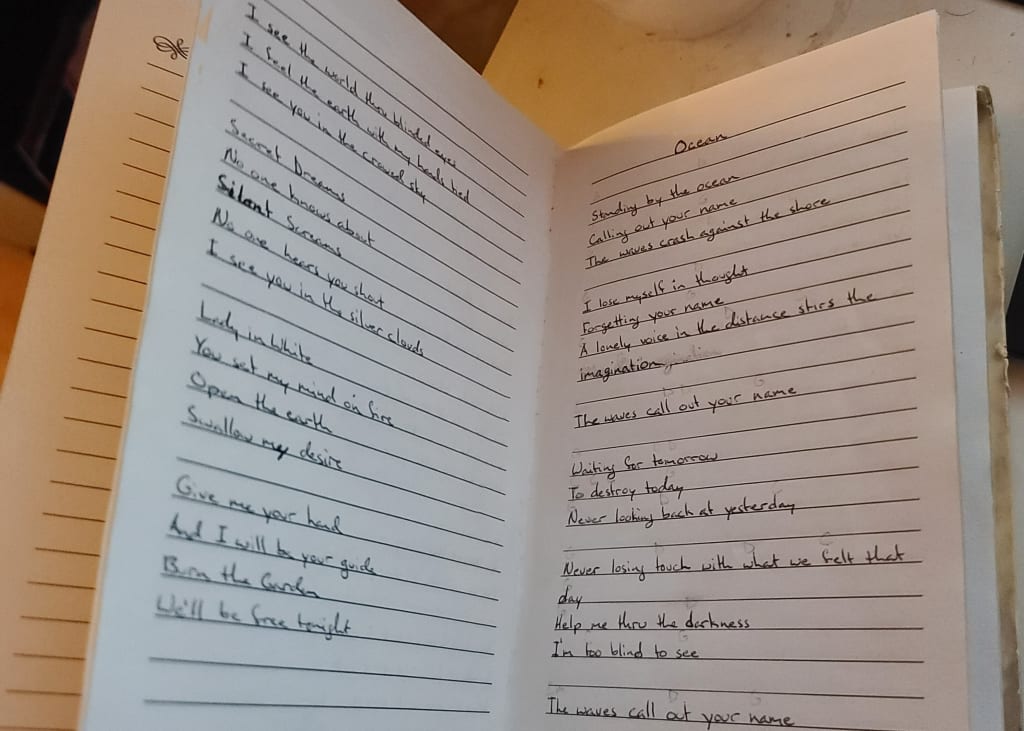 I see the world thru blinded eyes
I feel the earth with my hands tied
I see you in the crowed sky
Secret Dreams
No one knows about
Silent Screams
No one hears you shout
I see you in the silver clouds
Lady in White
You set my mind on fire
Open the earth
Swallow my desire
Give me your hand
And I will be your guide
Burn the Garden
We'll be free tonight
Ocean
Standing by the ocean
Calling out your name
The waves crash against the shore
I lose myself in thought
Forgetting your name
A lonely voice in the distance stirs the
imagination
The waves call out your name
Waiting for tomorrow
To destroy today
Never looking back at yesterday
Never losing touch with what we felt that
day
Help me thru the darkness
I'm too blind to see
The waves call out your name